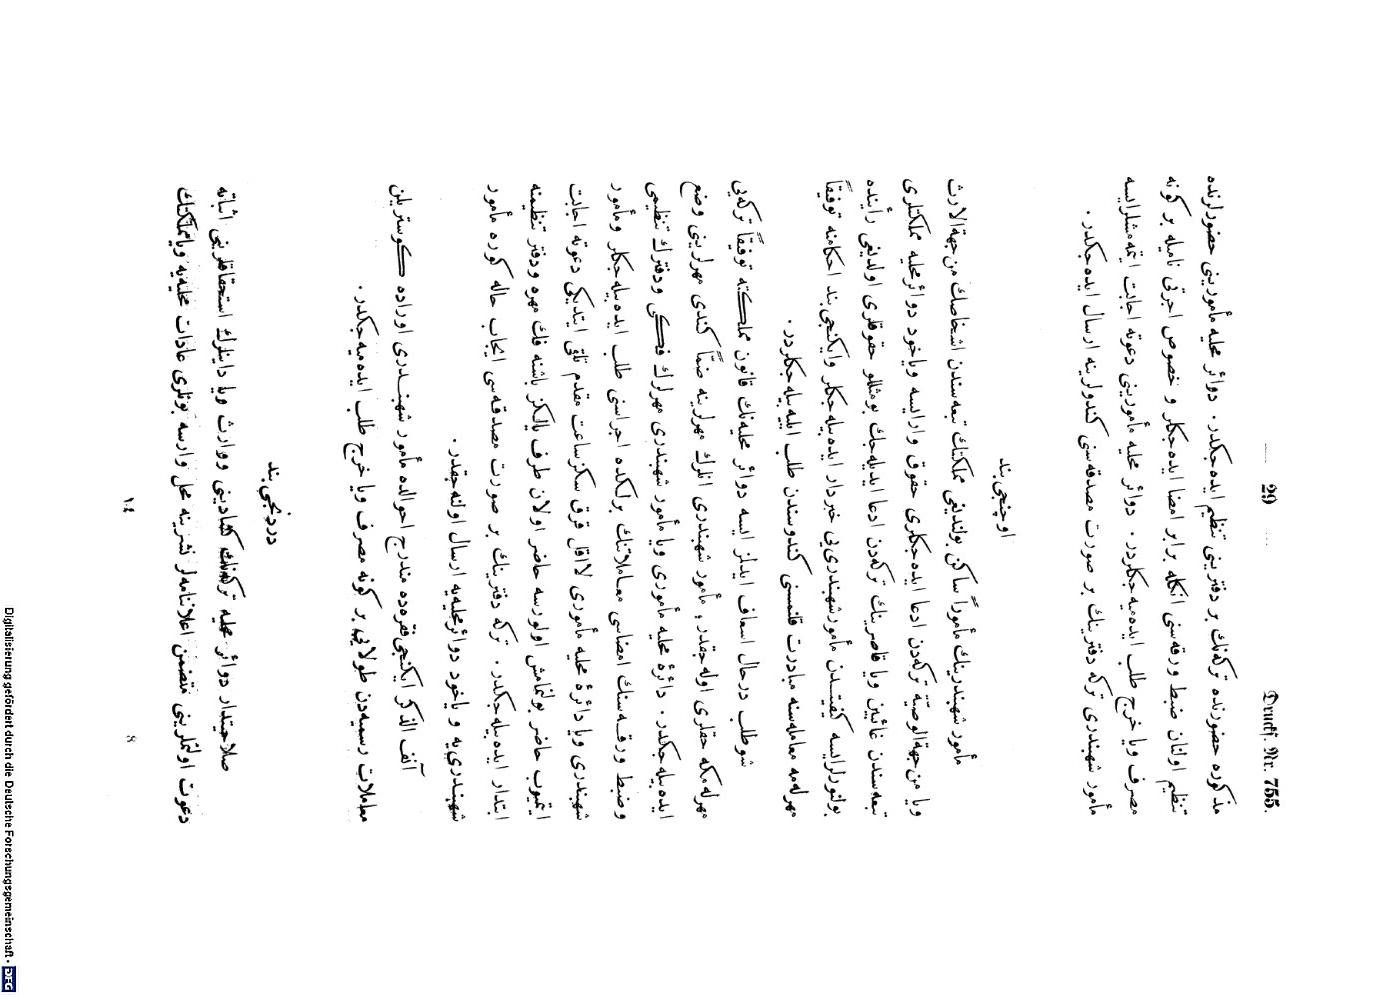 Drucks. Nr. 755.
29
مذكوره حضورنده تركه‌نك بر دفترينى تنظيم ايده‌جكدر. دوائر محليه مأمورينى حضورلرنده
تنظيم اولنان ضبط ورقه‌سنى انكله برابر امضا ايده‌جكلر و خصوص اجرتى ناميله بر كونه
مصرف ويا خرج طلب ايده‌ميه‌جكلردر. دوائر محليه مأمورينى دعوته اجابت ايتمه‌مشلرايسه
مأمور شهبندرى تركه دفترينك بر صورت مصدقه‌سنى كندولرينه ارسال ايده‌جكدر.
اوچنجى بند
مأمور شهبندرينك مأموراً ساكن بولنديغى مملكتك تبعه‌سندن اشخاصك من جهة الارث
ويا من جهة الوصية تركه‌دن ادعا ايده‌جكلرى حقوق وارايسه وياخود دوائر محليه مملكتلرى
تبعه‌سندن غائبين ويا قاصرينك تركه‌دن ادعا ايديله‌جك بومثللو حقوقلرى اولديغى رأينده
بولنورلرايسه كيفيتدن مأمور شهبندرى‌يى خبردار ايده‌بيله‌جكلر وايكنجى بند احكامنه توفيقاً
مهرلمه معامله‌سنه مبادرت قلنمسنى كندوسندن طلب ايليه‌بيله‌جكلردر.
شوطلب درحال اسعاف ايدلمز ايسه دوائر محليه‌نك قانون مملكته توفيقاً تركه‌يى
مهرلمكه حقلرى اوله‌جقدر، مأمور شهبندرى انلرك مهرلرينه ضمّاً كندى مهرلرينى وضع
ايده‌بيله‌جكدر. دائرهٔ محليه مأمورى ويا مأمور شهبندرى مهرلرك فكى ودفترك تنظيمى
وضبط ورقه‌سنك امضاسى معاملاتنك برلكده اجراسنى طلب ايده‌بيله‌جكلر ومأمور
شهبندرى ويا دائرهٔ محليه مأمورى لااقل قرق سكز ساعت مقدم تلقى ايتديكى دعوته اجابت
ايتميوب حاضر بولنمامش اولورسه حاضر اولان طرف يالكز باشنه فك مهره ودفتر تنظيمنه
ابتدار ايده‌بيله‌جكدر. تركه دفترينك بر صورت مصدقه‌سى ايجاب حاله كوره مأمور
شهبندرى‌يه و ياخود دوائر محليه‌يه ارسال اولنه‌جقدر.
آنف الذكر ايكنجى فقره‌ده مندرج احوالده مأمور شهبندرى اوراده كوستريلن
معاملات رسميه‌دن طولايى بر كونه مصرف ويا خرج طلب ايده‌ميه‌جكدر.
دردنجى بند
صلاحيتدار دوائر محليه تركه‌نك كشادينى ووارث ويا داينلرك استحقاقلرينى اثباته
دعوت اولنملرينى متضمن اعلاننامه‌لر نشرينه محل وارسه بونلرى عادات محليه‌يه ويا مملكتك
١٤
8
Digitalisierung gefördert durch die Deutsche Forschungsgemeinschaft - DFG